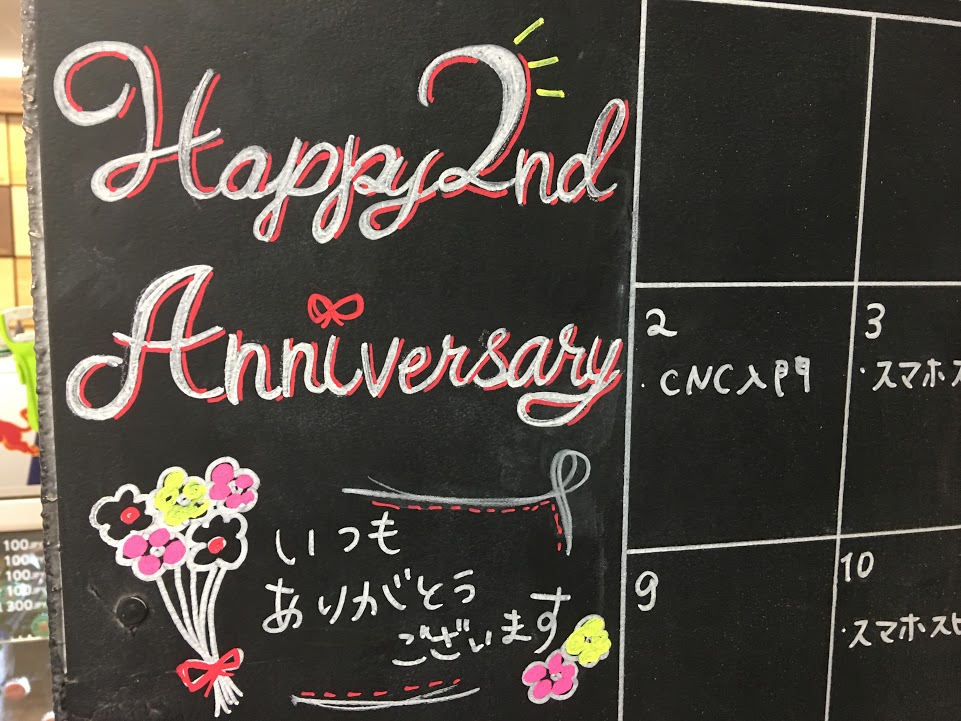 Happy 2nd
Anniversary
いつも
ありがとう
ございます
2
・CNC入門
3
・スマホス
9
10
・スマホスピ
100
100
100
100
300